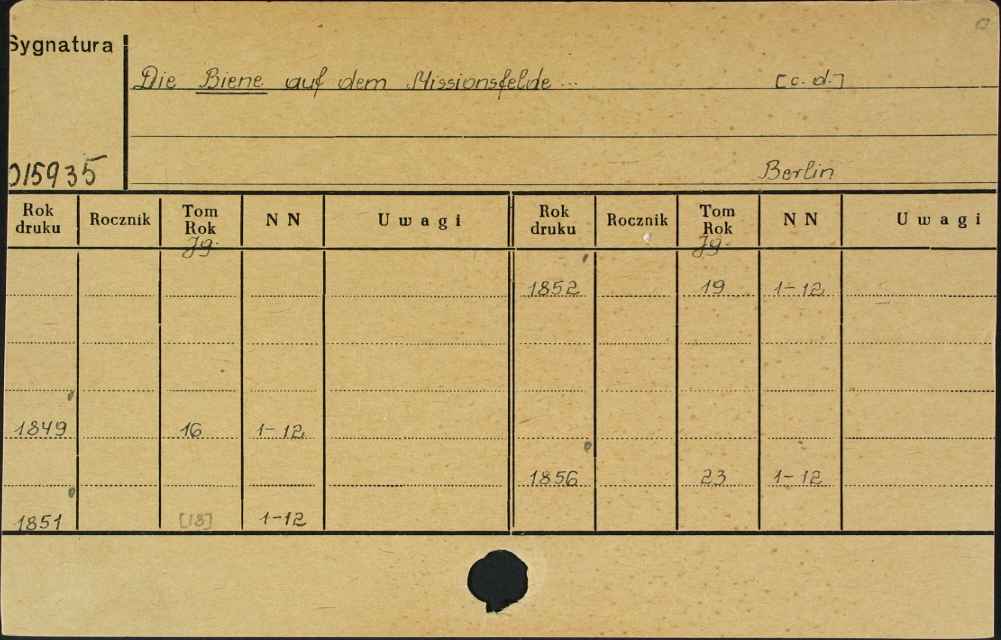 Sygnatura
Die Biene auf dem Missionsfelde ... [c. d.]
015935
Berlin
Rok druku Rocznik Tom Rok NN Uwagi Rok druku Rocznik Tom Rok NN Uwagi
Jg. Jg.
1852 19 1-12
1849 16 1-12
1856 23 1-12
1851 [18] 1-12